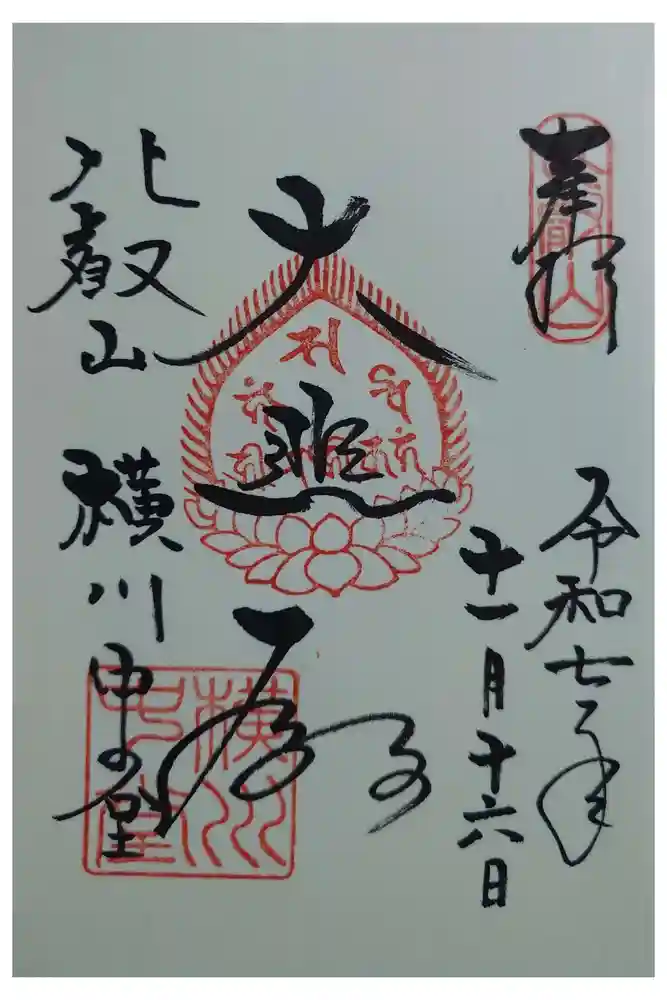 奉拝
令和七年
十一月十六日
大悲殿
比叡山 横川中堂
比叡山
横川中堂